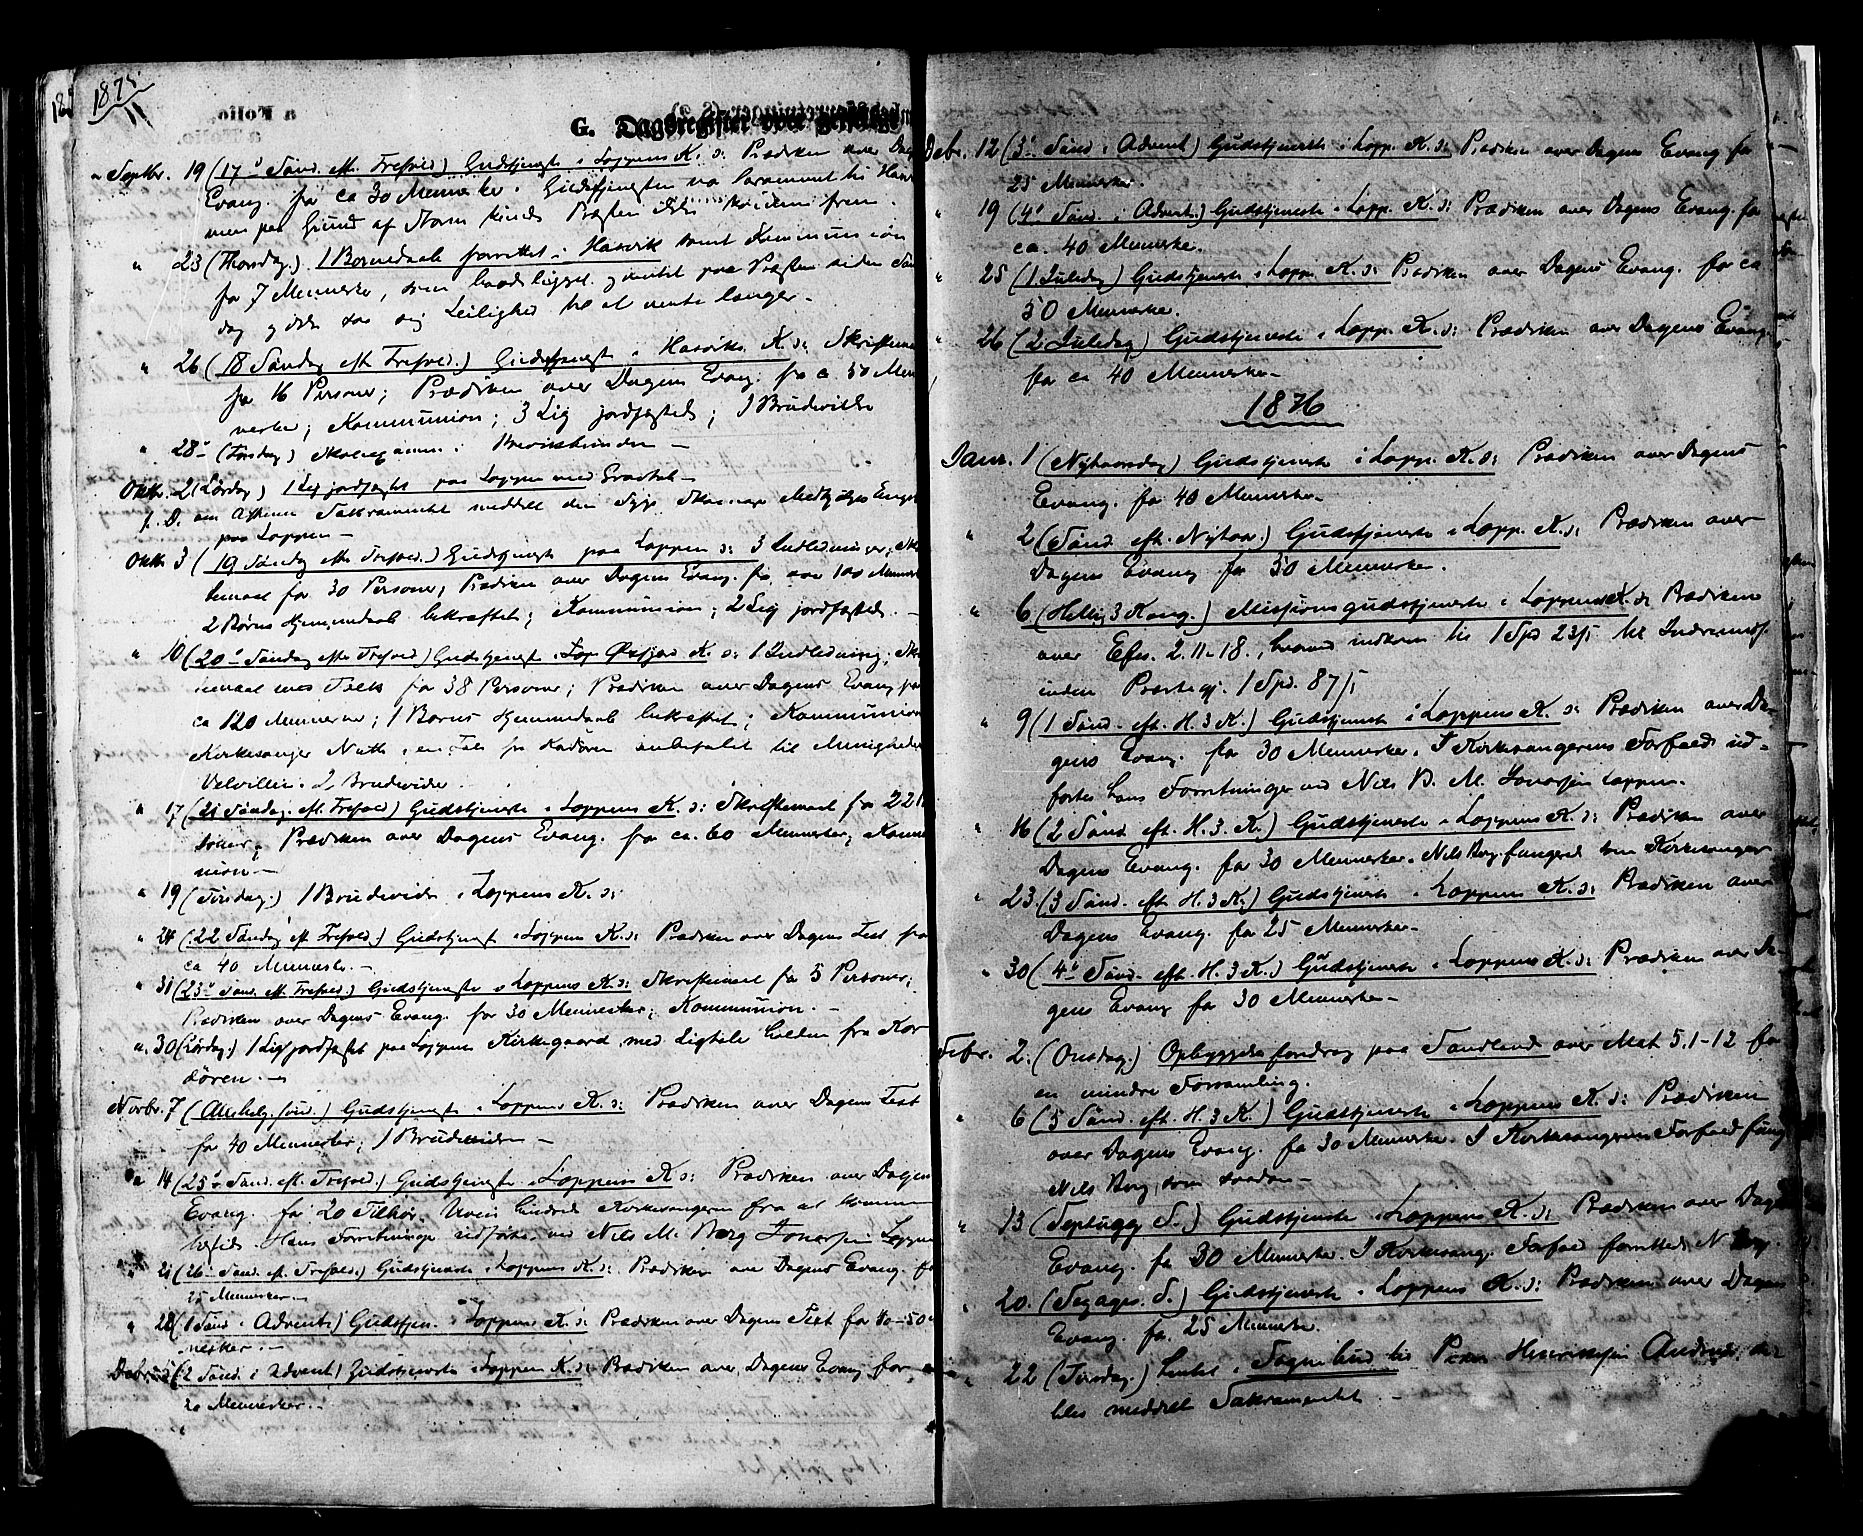 1875
G. Dagsregister over
" Septbr. 19 (17de Sønd. eft. Trefold.) Gudstjeneste i Loppens K. o: Prædiken over Dagens
Evang. for ca 30 Mennesker. Gudstjenesten var berammet til Hasvik
men paa Grund af Storm kunde Præsten ikke komme frem.
" 23 (Thorsdag.) 1 Barnedaab forrettet i Hasvik samt Kommunion
for 7 Mennesker, som havde ligget og ventet paa Præsten siden Søn
dag og ikke saa sig Leilighed til at vente længer.
" 26 (18 Søndag eft Trefold.) Gudstjeneste i Hasviks K. o: Skriftemaal
for 16 Personer; Prædiken over Dagens Evang. for ca. 50 Men
nesker; Kommunion; 3 Lig jordfæstede; 1 Brudevielse
" 28 (Tirsdag) Skoleexamen i
Oktbr. 2 (Lørdag) 1 Lig jordfæstet paa Loppen med Gravtale
s. D. om Aftenen Sakramentet meddelt den syge
paa Loppen
Oktbr 3 (19 Søndag efter Trefold.) Gudstjeneste paa Loppen o: 3 Indledninger; Skrif
temaal for 30 Personer; Prædiken over Dagens Evang. for over 100 Mennesker
2 Børns Hjemmedaab bekræftet; Kommunion; 2 Lig jordfæstede.
" 10 (20de Søndag efter Trefold.) Gudstjeneste i Øxfjord K. o: 1 Indledning; Skrif
temaal med Tolk for 38 Personer; Prædiken over Dagens Evang for
ca 120 Mennesker; 1 Barns Hjemmedaab bekræftet; Kommunion
Kirkesanger i en Tale fra Kordøren anbefalet til Menighedens
Velvillie. 2 Brudevielser
" 17 (21 Søndag eft. Trefold.) Gudstjeneste i Loppens K. o: Skriftemaal for 22 Per
soner; Prædiken over Dagens Evang. for ca. 60 Mennesker; Kommu
nion.
" 19 (Tirsdag.) 1 Brudevielse i Loppens K. o:
" 24 (22 Søndag eft Trefold.) Gudstjeneste i Loppens K. o: Prædiken over Dagens Text for
ca 40 Mennesker.
" 31 (23de Sønd. eft. Trefold.) Gudstjeneste i Loppens K. o: Skriftemaal for 5 Personer;
Prædiken over Dagens Evang. for 30 Mennesker; Kommunion.
" 30 (Lørdag.) 1 Lig jordfæstet paa Loppens Kirkegaard med Ligtale holden fra Kor
døren.
Novbr. 7 (Allehelg. Sønd.) Gudstjeneste i Loppens K. o: Prædiken over Dagens Text
for 40 Mennesker; 1 Brudevielse
" 14 (25de Sønd. eft. Trefold.) Gudstjeneste i Loppens K o: Prædiken over Dagens
Evang. for 20 Tilhør. Uveir hindred Kirkesangeren fra at komme
tilstede. Hans Forretninger udførtes ved Nils M. Berg Jonassen Loppen
" 21 (26 Sønd. eft. Trefold.) Gudstjeneste i Loppens K. o: Prædiken over Dagens Evang. for
25 Mennesker.
" 28 (1 Sønd i Advent) Gudstjen. i Loppens K. o: Prædiken over Dagens Text for 40-50 Men
nesker.
Debr. 5 (2 Sønd. i Advent) Gudstjeneste i Loppens K. o: Prædiken over Dagens Evang. for
20 Mennesker.
Debr. 12 (3de Sønd. i Advent) Gudstjeneste i Lopp. K. o: Prædiken over Dagens Evang for
25 Mennesker.
" 19 (4de Sønd. i Advent.) Gudstjeneste i Lopp. K. o: Prædiken over Dagens Evang. for
ca. 40 Mennesker.
" 25 (1 Juledag) Gudstjeneste i Lopp. K. o: Prædiken over Dagens Evang. for ca
50 Mennesker.
" 26 (2 Juledag) Gudstjeneste i Lopp. K. o: Prædiken over Dagens Evang.
for ca 40 Mennesker
1876
Janr. 1 (Nytaarsdag) Gudstjeneste i Lopp. K. o: Prædiken over Dagens
Evang. for 40 Mennesker
" 2 (Sønd. eft. Nytaar.) Gudstjeneste i Lopp. K. o: Prædiken over
Dagens Evang for 30 Mennesker.
" 6 (Hellig 3 Kong.) Missionsgudstjeneste i Loppens K. o: Prædiken
over Efes. 2. 11-18., hvorved indkom til 1 Spd 23 ß til Indremis.
inden Præstegj. 1 Spd. 87 ß
" 9 (1 Sønd. eft. H. 3 K.) Gudstjeneste i Loppens K. o: Prædiken over Da-
gens Evang. for 30 Mennesker. I Kirkesangerens Forfald ud-
førtes hans Forretninger ved Nils B. M. Jonassen Loppen.
" 16 (2 Sønd eft. H. 3. K.) Gudstjeneste i Loppens K. o: Prædiken over
Dagens Evang. for 30 Mennesker. Nils Berg fungered som Kirkesanger
" 23. (3 Sønd. eft. H. 3 K.) Gudstjeneste i Loppens K. o: Prædiken over
Dagens Evang. for 25 Mennesker.
" 30 (4de Sønd. eft. H. 3 K.) Gudstjeneste i Loppens K. o: Prædiken over Da-
gens Evang for 30 Mennesker
Febr. 2. (Onsdag.) Opbyggelsesforedrag paa Sandland over Mat 5. 1-12 for
en mindre Forsamling.
" 6 (5 Sønd. eft. H. 3 K.) Gudstjeneste i Loppens K. o: Prædiken
over Dagens Evang. for 30 Mennesker. I Kirkesangerens Forfald fung.
Nils Berg som saadan
" 13 (Septuag. S.) Gudstjeneste i Loppens K. o: Prædiken over Dagens
Evang. for 30 Mennesker. I Kirkesang. Forfald forrettede N. Berg.
" 20. (Sexages. S.) Gudstjeneste i Loppens K. o: Prædiken over Dagens
Evang. for 25 Mennesker.
" 22 (Tirsdag.) hentet i Sognebud til Peder Henriksen der
blev meddelt Sakramentet